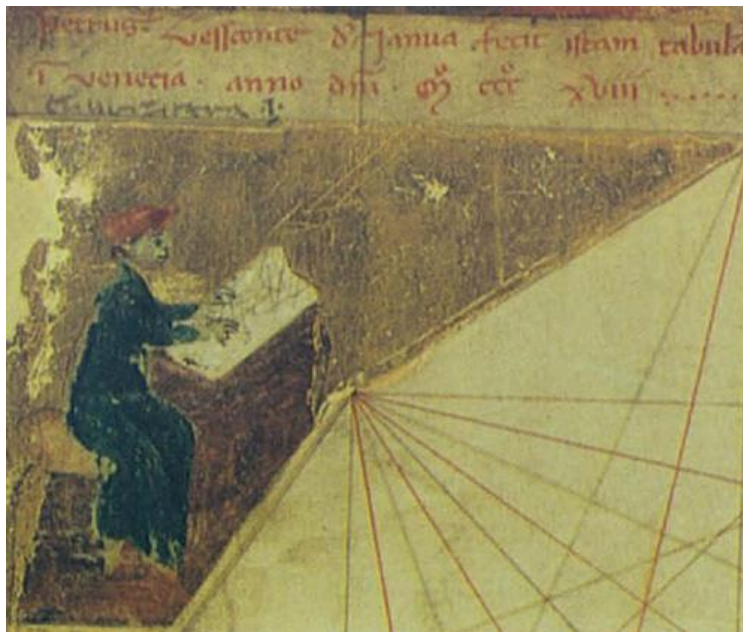 petrus vessconte d' Janua fecit istam tabulā
ī venecia · anno dn̄i · Mº cccº xviii ·····